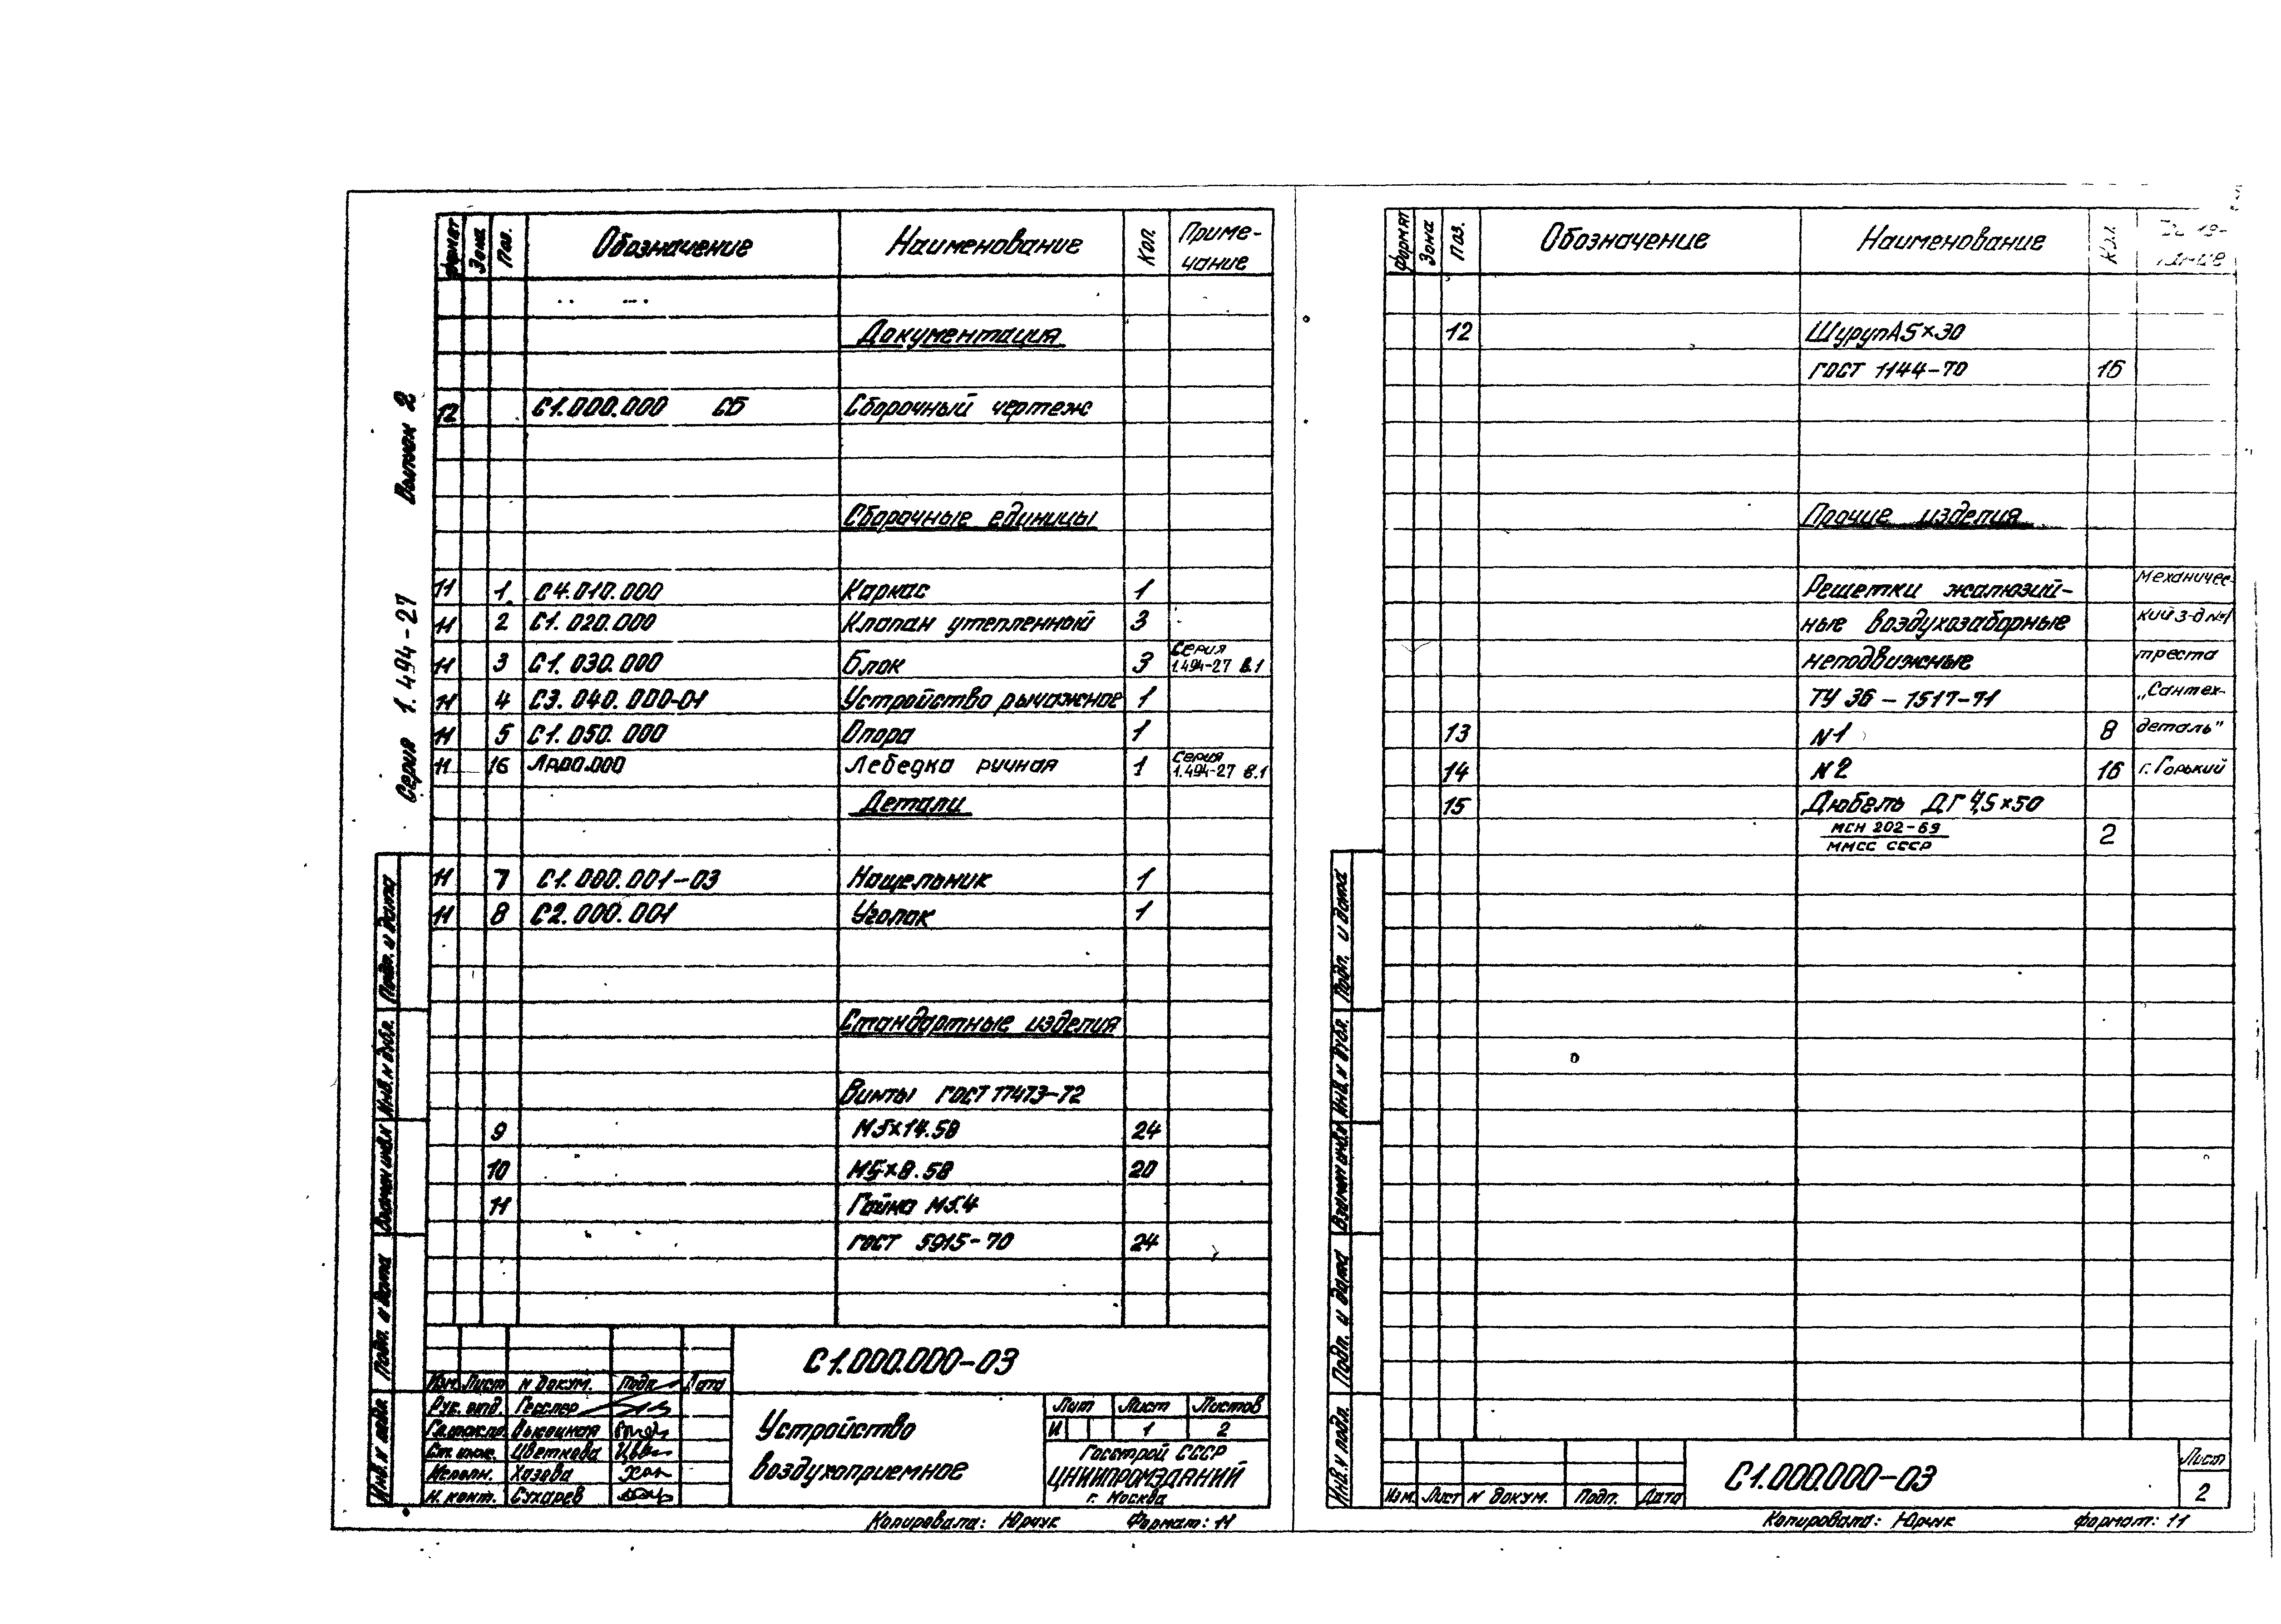 Серия 1.494-27 Выпуск 2
Формат Зона Поз. Обозначение Наименование Кол. Приме-
чание
Документация
12 С1.000.000 СБ Сборочный чертеж
Сборочные единицы
11 1 С4.010.000 Каркас 1
11 2 С1.020.000 Клапан утепленный 3
11 3 С1.030.000 Блок 3 Серия
1.494-27 В.1
11 4 С3.040.000-01 Устройство рычажное 1
11 5 С1.050.000 Опора 1
11 16 ЛР00.000 Лебедка ручная 1 Серия
1.494-27 В.1
Детали
11 7 С1.000.001-03 Нащельник 1
11 8 С2.000.001 Уголок 1
Стандартные изделия
Винты ГОСТ 17473-72
9 М5×14.58 24
10 М5×8.58 20
11 Гайка М5.4
ГОСТ 5915-70 24
Инв. N подл. Подп. и дата Взамен инв. N Инв. N дубл. Подп. и дата
С1.000.000-03
Изм. Лист N докум. Подп. Дата
Рук. отд. Гесслер
Высоцкая
Ст. инж. Цветкова
Исполн. Хазова
Н. конт. Сухарев
Устройство
воздухоприемное
Лит Лист Листов
И 1 2
Госстрой СССР
ЦНИИПРОМЗДАНИЙ
г. Москва
Копировала: Юрчук Формат: 11
Формат Зона Поз. Обозначение Наименование Кол.
12 Шуруп А5×30
ГОСТ 1144-70 16
Прочие изделия
Решетки жалюзий- Механичес-
ные воздухозаборные кий з-д №1
неподвижные треста
ТУ 36-1517-71 „Сантех-
13 N1 8 деталь"
14 N2 16 г. Горький
15 Дюбель ДГ 4,5×50
МСН 202-69
ММСС СССР 2
Инв. N подл. Подп. и дата Взамен инв. N Инв. N дубл. Подп. и дата
Изм. Лист N докум. Подп. Дата
С1.000.000-03
Лист
2
Копировала: Юрчук Формат: 11